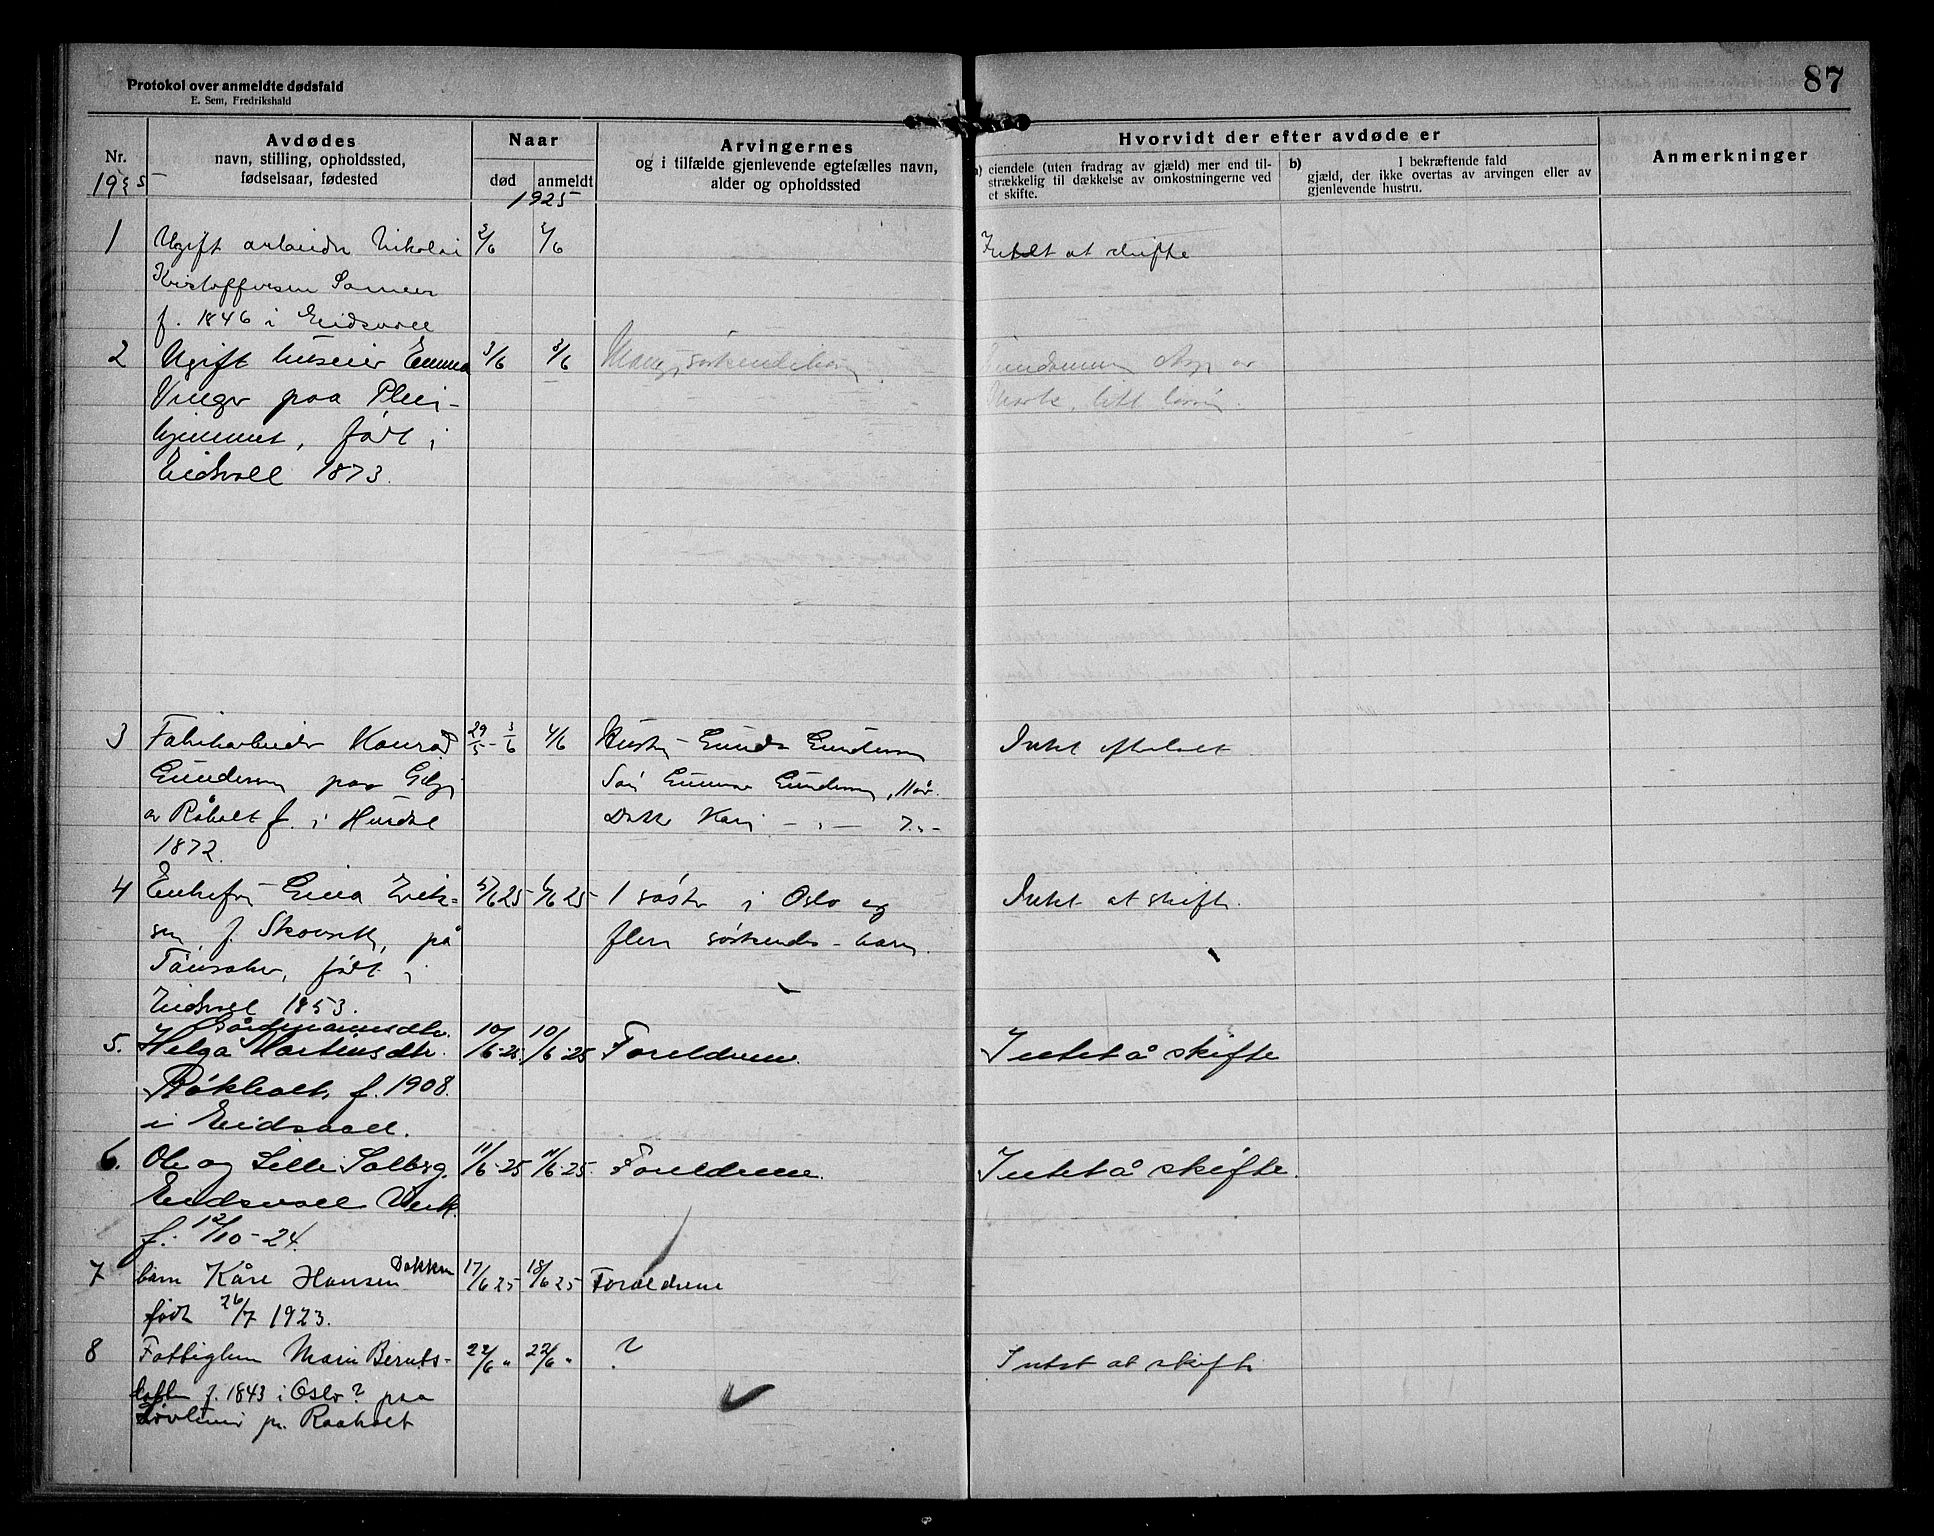 Protokol over anmeldte dødsfald
E. Sem, Fredrikshald
87
Nr.
1925
Avdødes
navn, stilling, opholdssted,
fødselsaar, fødested
Naar
død
anmeldt
1925
Arvingernes
og i tilfælde gjenlevende egtefælles navn,
alder og opholdssted
Hvorvidt der efter avdøde er
a) eiendele (uten fradrag av gjæld) mer end til-
strækkelig til dækkelse av omkostningerne ved
et skifte.
b) I bekræftende fald
gjæld, der ikke overtas av arvingen eller av
gjenlevende hustru.
Anmerkninger
1 Ugift arbeider Nikolai 2/6 2/6 Intet at skifte
Kristoffersen
f. 1846 i Eidsvoll
2 Ugift huseier Emma 3/6 3/6
Vinger paa Plei-
hjemmet, født i
Eidsvoll 1873.
3 Fabrikarbeider Konrad 29/5 - 3/6 4/6 Hustru Gunda Gundersen Intet efterlatt
Gundersen paa Søn Gunnar Gundersen, 11 år.
av Råholt f. i Hurdal Datter Kari - " - 7 " -
1872.
4 Enkefru Gina Erik- 5/6 25 6/6 25 1 søster i Oslo og Intet at skifte.
sen f. på flere søskendebarn.
født i
Eidsvoll 1853.
Gårdmannsdtr.
5. Helga Martinsdtr. 10/6-25. 10/6-25 Foreldrene. Intet å skifte
Bøkholt, f. 1908.
i Eidsvoll.
6. Ole og Lilli Solberg. 11/6-25 11/6-25. Foreldrene. Intet å skifte.
Eidsvoll Verk.
f: 12/10-24.
7 barn Kåre Hansen Dokken 17/6 25 18/6 25 Foreldrene
født 26/7 1923.
8 Fattiglem Marie Bernts- 22/6 " 22/6 " ? Intet at skifte
datter f. 1843 i Oslo? paa
pr. Raaholt